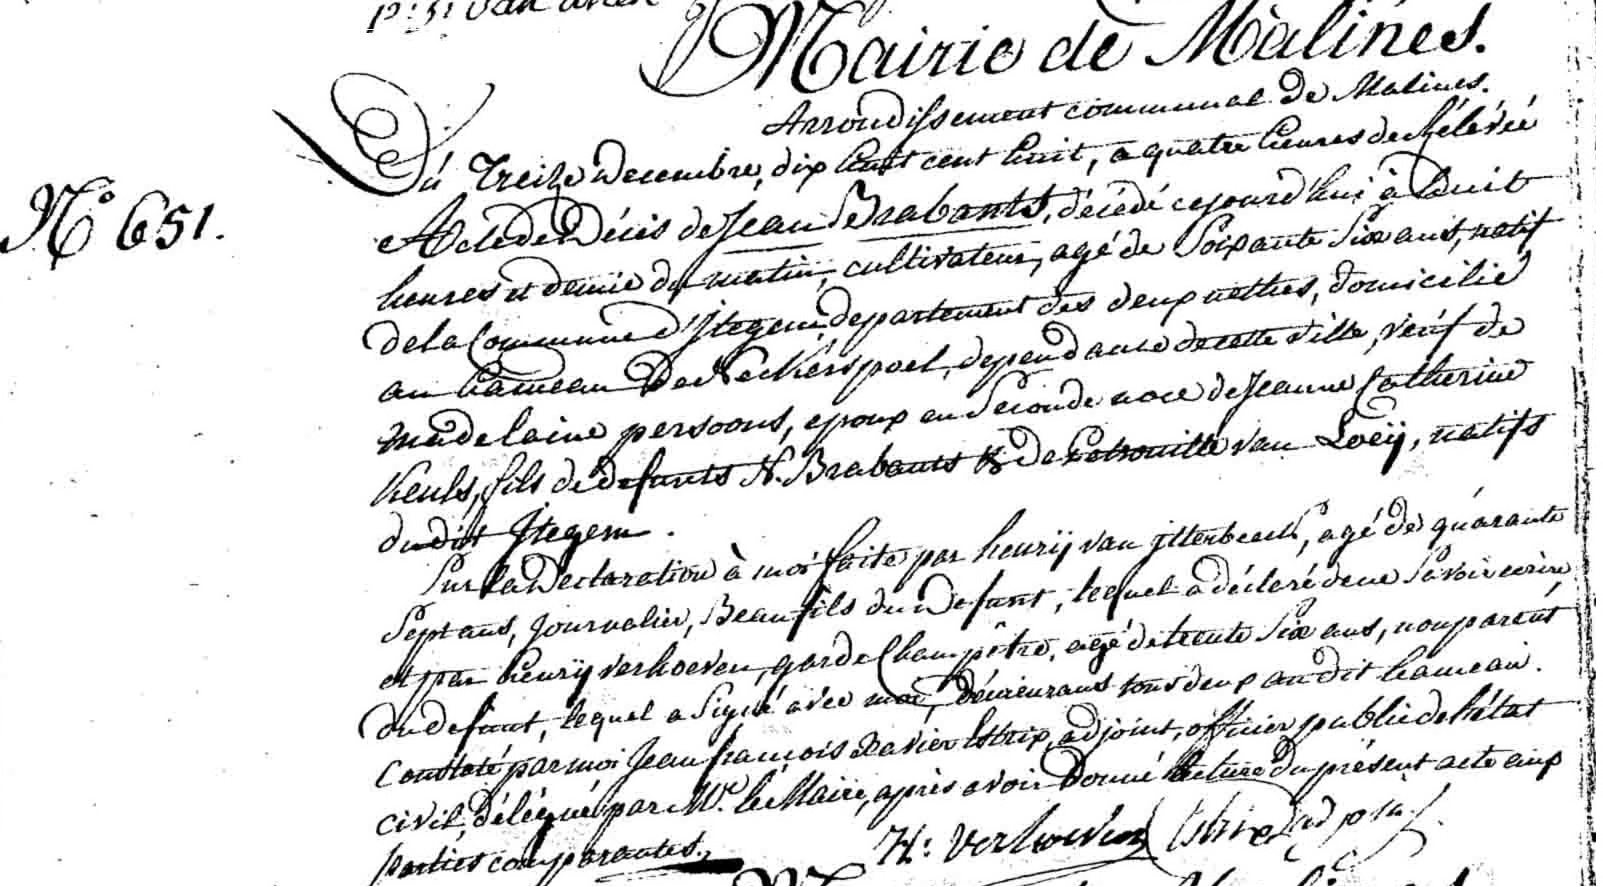 Mairie de Malines.
Arrondissement communal de Malines.
Du Treize Decembre, dix huit cent huit, a quatre heures de Rélévée
N° 651.
Acte de Décès de Jean Brabants, décédé cejourd'hui à huit
heures et demie du matin, cultivateur, agé de Soixante Six ans, natif
de la Commune d'Itegem, departement des deux nethes, domicilié
au hameau de Neckerspoel, dependance de cette ville, veuf de
madelaine persoons, epoux en Seconde noce de Jeanne Catherine
heuls, fils de defunts N. Brabants & de Petronille van Loeÿ, natifs
du dit Itegem.
Sur la Declaration à moi faite par henrÿ van itterbeeck, agé de quarante
Sept ans, Journalier, Beaufils du Defunt, lequel a déclaré de ne Savoir ecrire
et par henrÿ verhoeven, garde Champêtre, agé de trente Six ans, non parent
du defunt, lequel a Signé avec moi, demeurans tous deux au dit hameau.
Constaté par moi Jean françois Xavier Estrix, adjoint, officier public de l'état
civil, délégué par Mr. le Maire, après avoir Donné lecture du présent acte aux
parties comparantes.
H: verhoeven Estrix adjoint